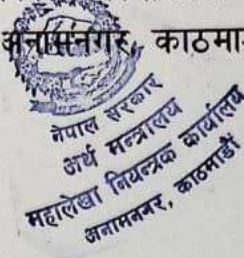 अनामनगर, काठमा
नेपाल सरकार
अर्थ मन्त्रालय
महालेखा नियन्त्रक कार्यालय
अनामनगर, काठमाडौं